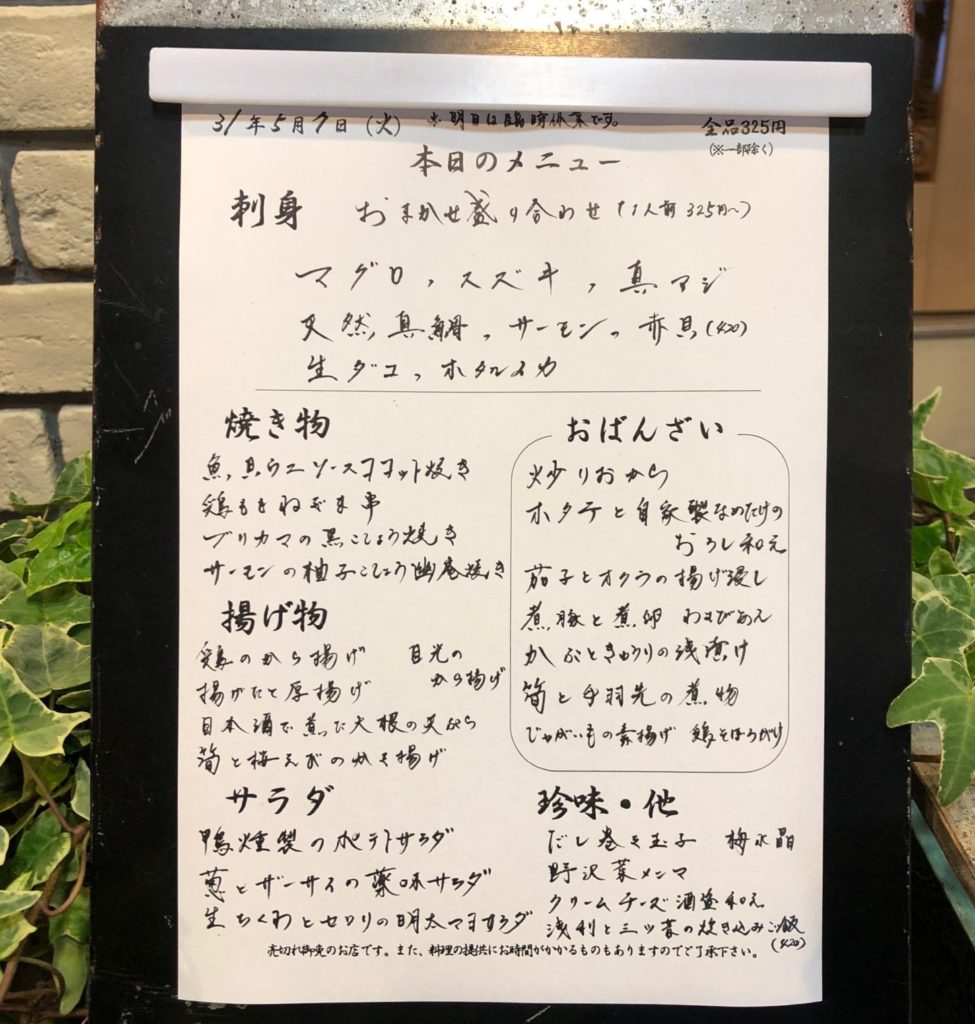 31年5月7日（火） ※明日は臨時休業です。 全品325円
（※一部除く）
本日のメニュー
刺身 おまかせ盛り合わせ（1人前 325円〜）
マグロ、スズキ、真アジ
天然真鯛、サーモン、赤貝（420）
生ダコ、ホタルイカ
焼き物
魚、貝ウニソースココット焼き
鶏ももねぎま串
ブリカマの黒こしょう焼き
サーモンの柚子こしょう幽庵焼き
揚げ物
鶏のから揚げ 目光の
から揚げ
揚げたと厚揚げ
日本酒で煮た大根の天ぷら
筍と桜えびのかき揚げ
サラダ
鴨燻製のポテトサラダ
葱とザーサイの薬味サラダ
生ちくわとセロリの明太マヨサラダ
おばんざい
炒りおから
ホタテと自家製なめたけの
おろし和え
茄子とオクラの揚げ浸し
煮豚と煮卵 わさびあん
かぶときゅうりの浅漬け
筍と手羽先の煮物
じゃがいもの素揚げ 鶏そぼろがけ
珍味・他
だし巻き玉子 梅水晶
野沢菜メンマ
クリームチーズ酒盗和え
浅利と三ツ葉の炊き込みご飯
（420）
売切れ御免のお店です。また、料理の提供にお時間がかかるものもありますのでご了承下さい。